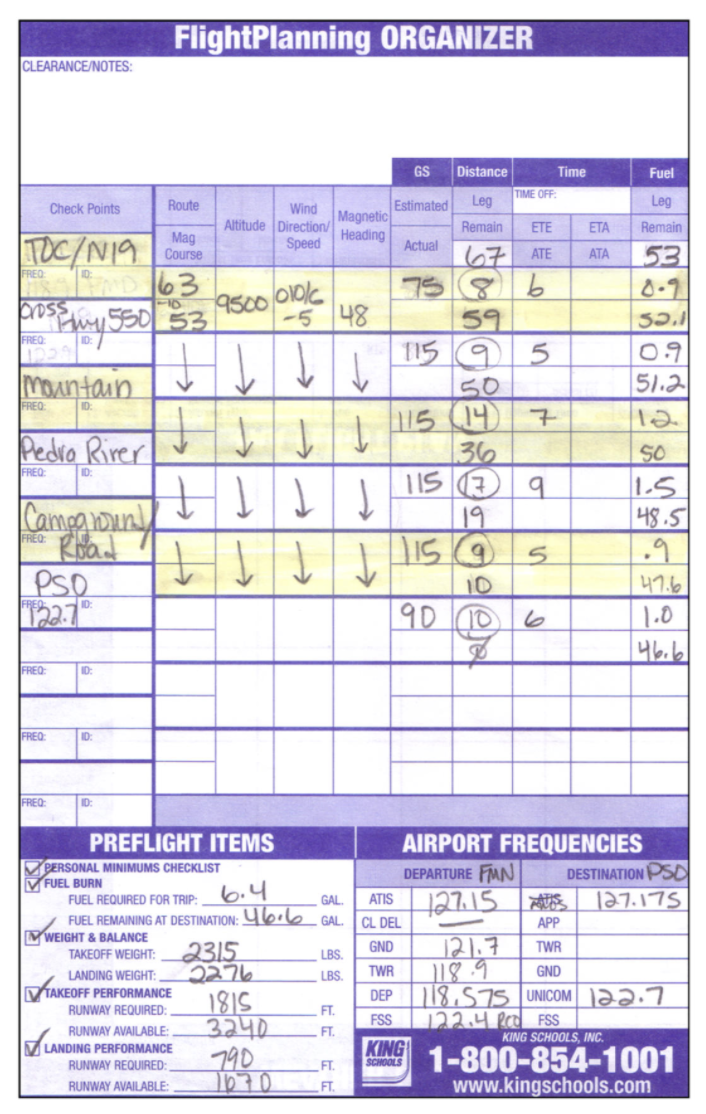 FlightPlanning ORGANIZER
CLEARANCE/NOTES:
GS Distance Time Fuel
Check Points Route Altitude Wind Direction/ Speed Magnetic Heading Estimated Leg TIME OFF: Leg
Mag Course Actual Remain ETE ETA Remain
TOC/N19 67 ATE ATA 53
FREQ: ID: 63 9500 010/6 75 8 6 0.9
Cross Hwy 550 -10 53 -5 48 59 52.1
FREQ: ID: ↓ ↓ ↓ ↓ 115 9 5 0.9
Mountain 50 51.2
FREQ: ID: ↓ ↓ ↓ ↓ 115 14 7 1.2
Pedra River 36 50
FREQ: ID: ↓ ↓ ↓ ↓ 115 17 9 1.5
Campground/ 19 48.5
FREQ: ID: Road ↓ ↓ ↓ ↓ 115 9 5 .9
PSO 10 47.6
FREQ: 122.7 ID: 90 10 6 1.0
0 46.6
FREQ: ID:
FREQ: ID:
FREQ: ID:
PREFLIGHT ITEMS
PERSONAL MINIMUMS CHECKLIST
FUEL BURN
FUEL REQUIRED FOR TRIP: 6.4 GAL.
FUEL REMAINING AT DESTINATION: 46.6 GAL.
WEIGHT & BALANCE
TAKEOFF WEIGHT: 2315 LBS.
LANDING WEIGHT: 2276 LBS.
TAKEOFF PERFORMANCE
RUNWAY REQUIRED: 1815 FT.
RUNWAY AVAILABLE: 3240 FT.
LANDING PERFORMANCE
RUNWAY REQUIRED: 790 FT.
RUNWAY AVAILABLE: 1670 FT.
AIRPORT FREQUENCIES
DEPARTURE FMN DESTINATION PSO
ATIS 127.15 ATIS AWOS 127.175
CL DEL — APP
GND 121.7 TWR
TWR 118.9 GND
DEP 118.575 UNICOM 122.7
FSS 122.4 RCO FSS
KING SCHOOLS
KING SCHOOLS, INC.
1-800-854-1001
www.kingschools.com